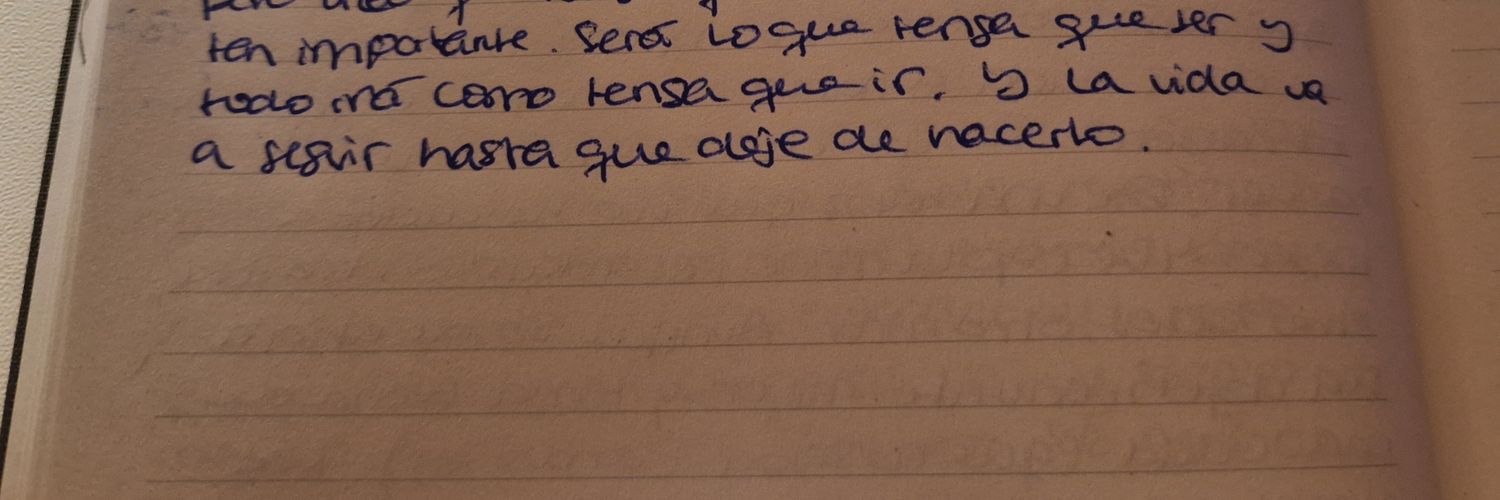 tan importante. Será lo que tenga que ser y
todo irá como tenga que ir. Y la vida va
a seguir hasta que deje de hacerlo.